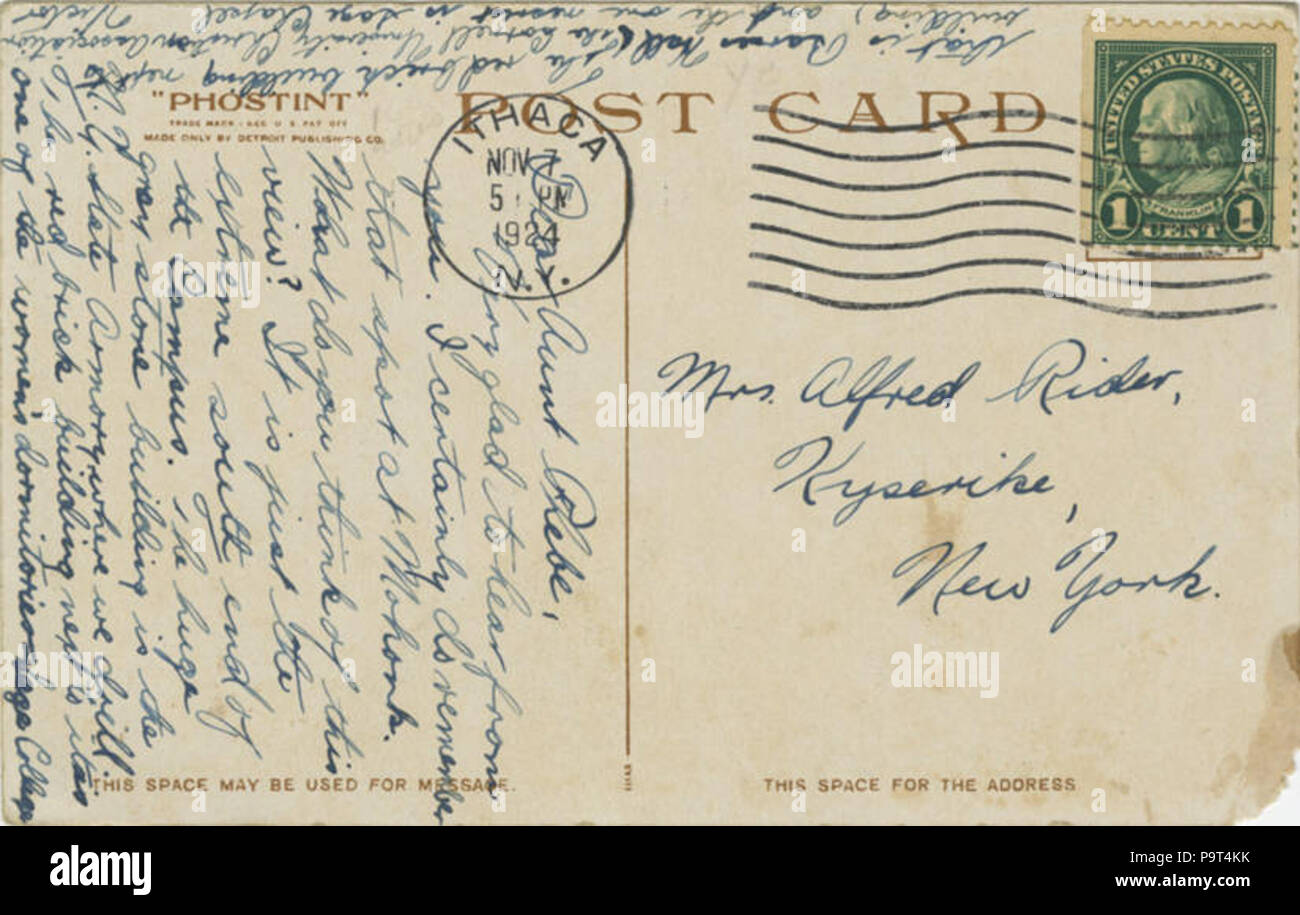 "PHOSTINT"
TRADE MARK - REG. U.S. PAT. OFF.
MADE ONLY BY DETROIT PUBLISHING CO.
POST CARD
ITHACA
NOV 7
5 PM
1924
N.Y.
UNITED STATES POSTAGE
FRANKLIN
1 CENT 1
Dear Aunt Phebe,
glad to hear from
you. I certainly do remember
that spot at Mohonk.
What do you think of this
view? It is just the
extreme south end of
the Campus. The huge
gray stone building is the
N.Y. State Armory where we drill.
The red brick building next is
one of the women's dormitories - Sage College
The red brick building next to
that is Barnes Hall (the Cornell University Christian Association
building) and the one nearest is Sage Chapel
Victor
Mrs. Alfred Rider,
Kyserike,
New York.
THIS SPACE MAY BE USED FOR MESSAGE.
THIS SPACE FOR THE ADDRESS
alamy
Image ID: P9T4KK
www.alamy.com